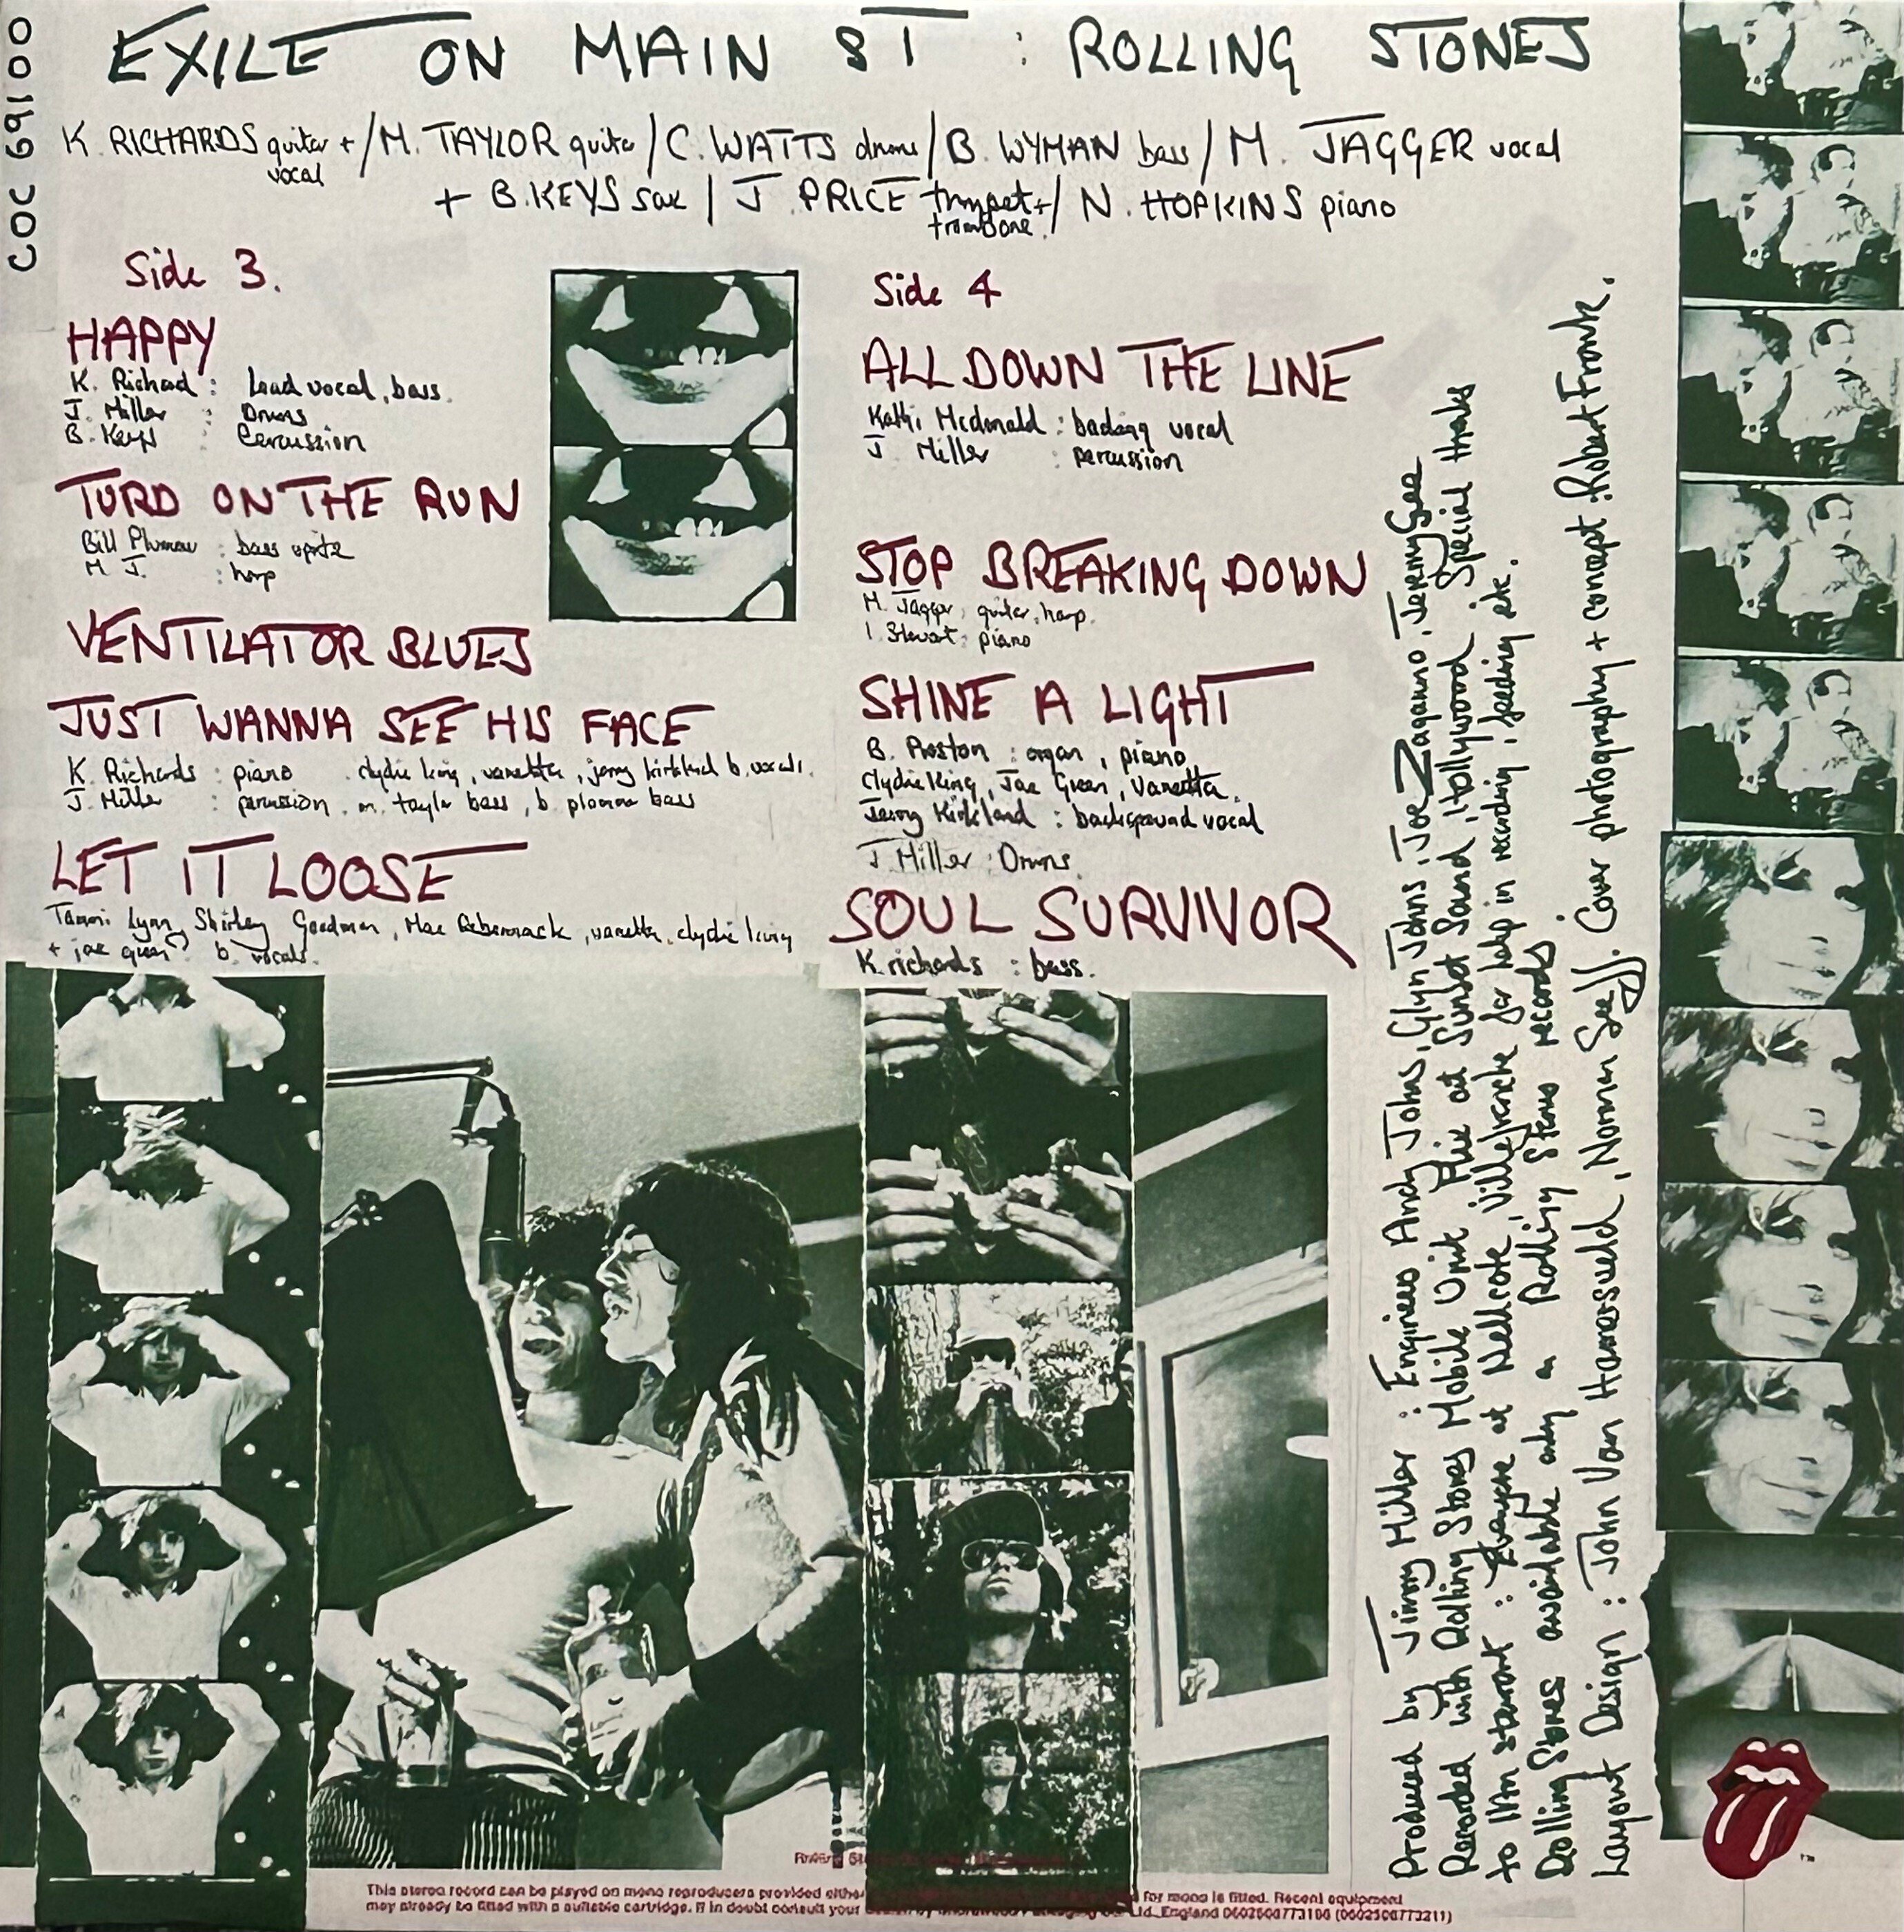 COC 69100
EXILE ON MAIN ST : ROLLING STONES
K RICHARDS guitar + vocal / M. TAYLOR guitar / C. WATTS drums / B. WYMAN bass / M. JAGGER vocal
+ B. KEYS sax / J. PRICE trumpet + trombone / N. HOPKINS piano
Side 3.
HAPPY
K. Richard : Lead vocal, bass.
J. Miller : Drums
B. Keys : Percussion
TURD ON THE RUN
Bill Plummer : bass
M. J. : harp
VENTILATOR BLUES
JUST WANNA SEE HIS FACE
K. Richards : piano . clydie king, vanetta, jerry kirkland b. vocals.
J. Miller : percussion . m. taylor bass, b. plummer bass
LET IT LOOSE
Tammi Lynn, Shirley Goodman, Mac Rebennack, vanetta, clydie king
+ joe green b. vocals.
Side 4
ALL DOWN THE LINE
Kathi Mcdonald : backing vocal
J. Miller : percussion
STOP BREAKING DOWN
M. Jagger, guitar, harp.
I. Stewart : piano
SHINE A LIGHT
B. Preston : organ, piano
Clydie King, Joe Green, Vanetta,
Jerry Kirkland : background vocal
J. Miller : Drums.
SOUL SURVIVOR
K. richards : bass.
Produced by Jimmy Miller : Engineers Andy Johns, Glyn Johns, Joe Zagarino, Jeremy Gee
Recorded with Rolling Stones Mobile Unit Mix at Sunset Sound, Hollywood. Special thanks
to Ian stewart : Everyone at Nellcote, Villefranche for help in recording, feeding etc.
Rolling Stones available only on Rolling Stones records
Layout Design : John Van Hamersveld, Norman Seeff. Cover photography + concept : Robert Frank.
This stereo record can be played on mono reproducers provided either for mono is fitted. Recent equipment
may already be fitted with a suitable cartridge. If in doubt consult your Ltd. England 0602508773198 (0602508773211)